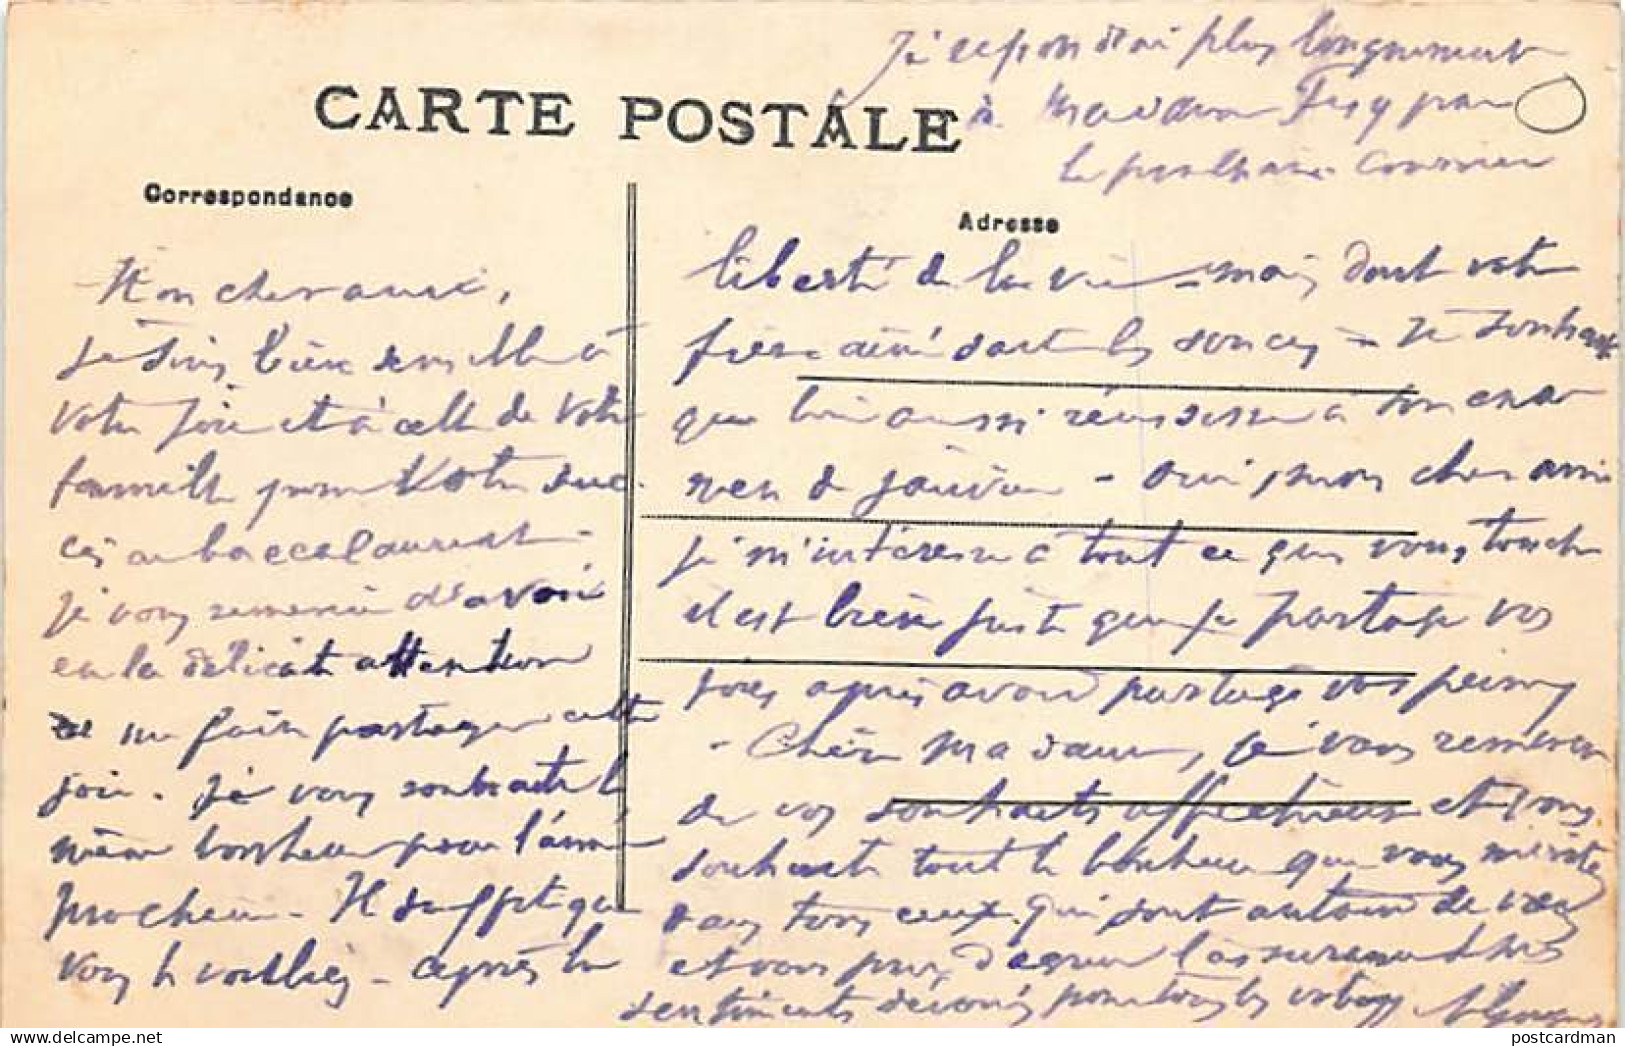 Je répondrai plus longuement
à Madame par
le prochain courrier
CARTE POSTALE
Correspondance
Adresse
Mon cher ami,
Je suis bien sensible à
votre joie et à celle de votre
famille pour votre suc-
cès au baccalauréat -
je vous remercie d'avoir
eu la délicate attention
de me faire partager cette
joie. Je vous souhaite le
même bonheur pour l'année
prochaine - Il suffit que
vous le vouliez - après la
liberté de la vie - mais dont votre
frère aîné sent les soucis - Je souhaite
que lui aussi réussisse à son exa-
men de janvier - Oui, mon cher ami
je m'intéresse à tout ce qui vous touche
il est bien juste que je partage vos
joies après avoir partagé vos peines
- Chère Madame, je vous remercie
de vos souhaits affectueux et vous
souhaite tout le bonheur que vous méritez
dans tous ceux qui sont autour de vous
et vous prie d'agréer l'assurance de mes
sentiments dévoués pour tous les vôtres
postcardman